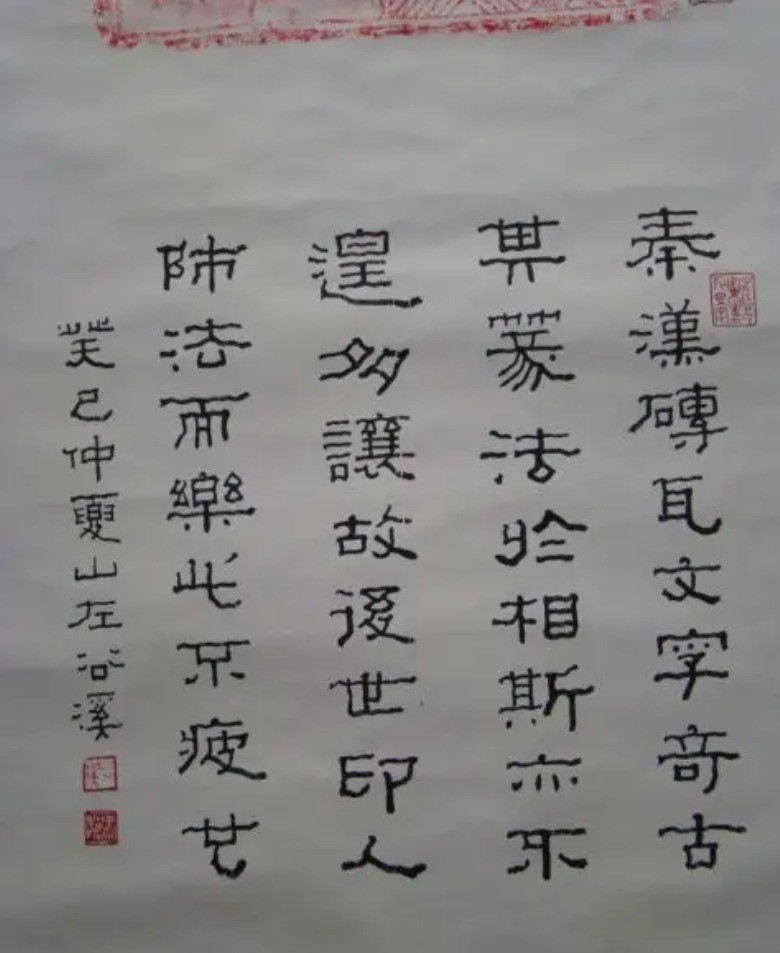 秦漢磚瓦文字奇古
其篆法於相斯亦不
遑多讓故後世印人
師法而樂此不疲也
癸巳仲夏山左公溪